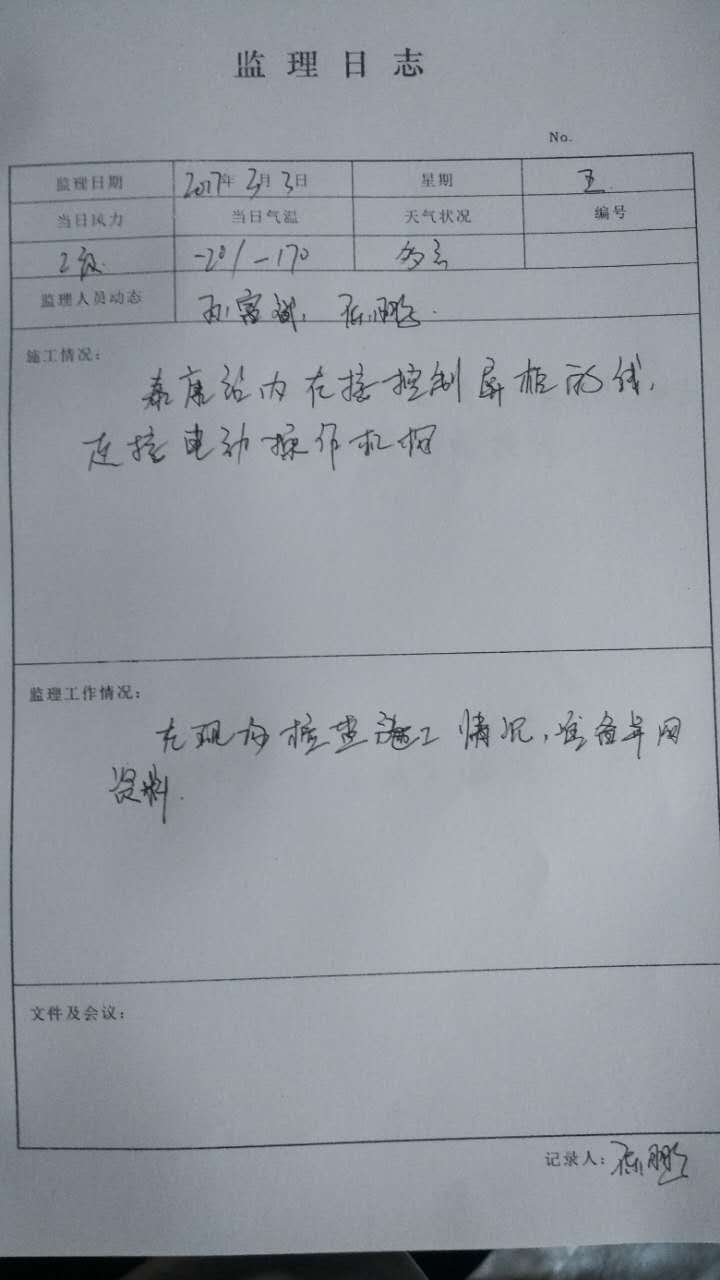 监理日志
No.
监理日期 2017年 3月 3日 星期 五
当日风力 当日气温 天气状况 编号
2级 -2°/-17° 多云
监理人员动态 孙富斌, 陈鹏.
施工情况:
泰康站内在接控制屏柜的线,
连接电动操作机构
监理工作情况:
在现场检查施工情况,准备并网
资料.
文件及会议:
记录人: 陈鹏